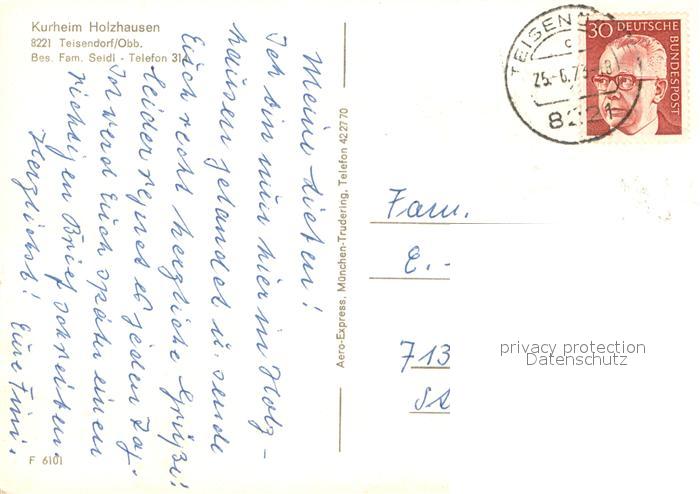 Kurheim Holzhausen
8221 Teisendorf/Obb.
Bes. Fam. Seidl - Telefon 314
Meine Lieben!
Ich bin nun hier in Holz-
hausen gelandet u. sende
Euch recht herzliche Grüße!
Leider regnet es jeden Tag.
Ich werd Euch später einen
richtigen Brief schreiben.
Herzlichst! Eure Fini.
F 6101
Aero-Express, München-Trudering, Telefon 422770
TEISEN
c
25.-6.73-18
8221
30 DEUTSCHE
BUNDESPOST
Fam.
E.-
713
privacy protection
Datenschutz